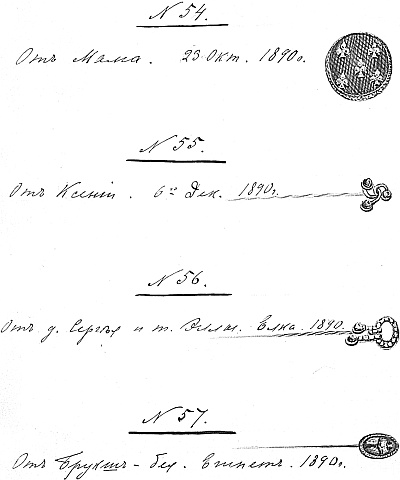 N 54.
Отъ Мама. 23 Окт. 1890 г.
N 55.
Отъ Ксенiи. 6го Дек. 1890 г.
N 56.
Отъ д. Сергѣя и т. Эллы. Елка. 1890.
N 57.
Отъ Бругшъ-бея. Египетъ. 1890 г.